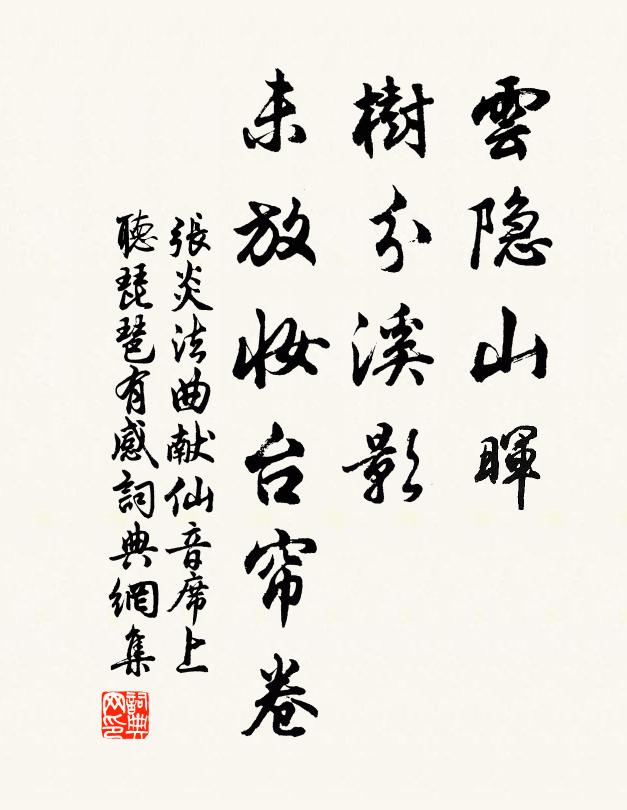 雲隐山暉
樹分溪影
未放妆台帘卷
張炎法曲献仙音席上
聽琵琶有感詞典網集
詞典网印